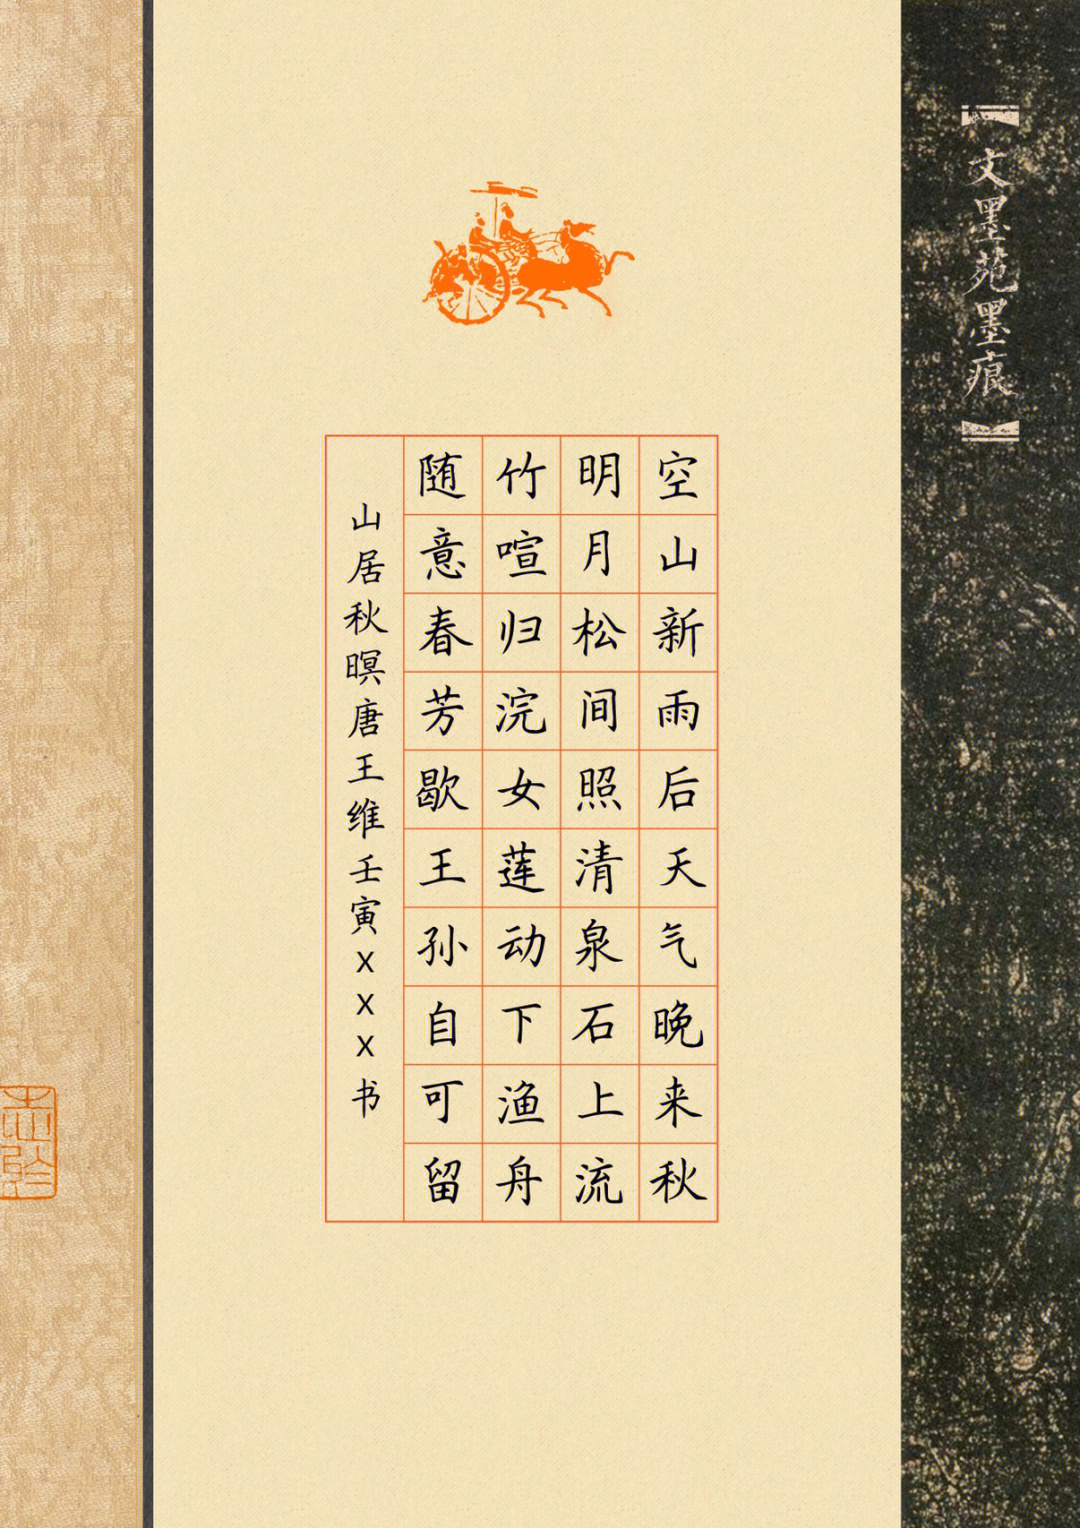 文墨苑墨痕
空山新雨后天气晚来秋
明月松间照清泉石上流
竹喧归浣女莲动下渔舟
随意春芳歇王孙自可留
山居秋暝唐王维壬寅XXX书